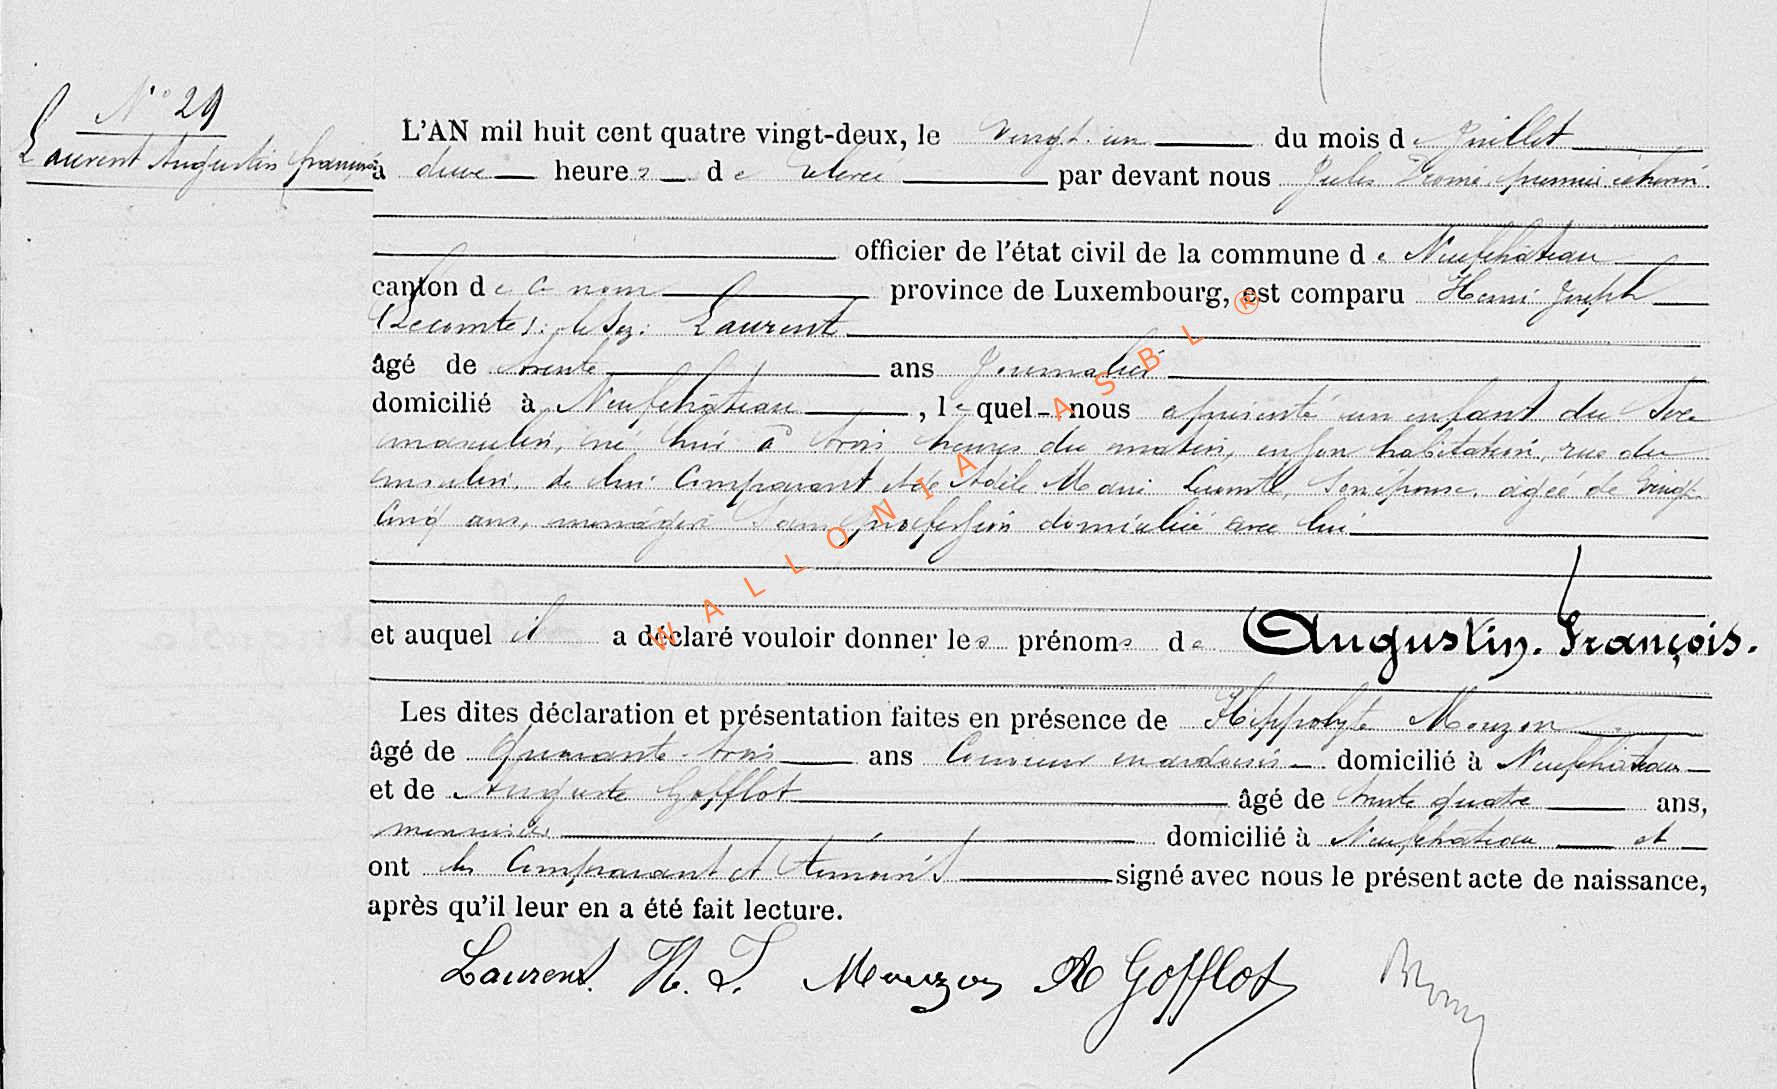 N° 29
Laurent Augustin françois
L'AN mil huit cent quatre vingt-deux, le vingt-un du mois de Juillet
à deux heures de relevée par devant nous Jules premier échevin
officier de l'état civil de la commune de Neufchâteau
canton de ce nom province de Luxembourg, est comparu Henri Joseph
(Lecomte) Laurent
âgé de trente ans Journalier
domicilié à Neufchâteau, lequel nous a présenté un enfant du sexe
masculin, né hui à trois heures du matin, en son habitation, rue du
moulin, de lui Comparant et de Adèle Marie Lecomte, son épouse, agée de vingt-
cinq ans, ménagère Sans profession domiciliée avec lui
et auquel il a déclaré vouloir donner les prénoms de Augustin. François.
Les dites déclaration et présentation faites en présence de Hippolyte Mouzon
âgé de Quarante-trois ans Couvreur en ardoises domicilié à Neufchâteau
et de Auguste Gofflot âgé de trente quatre ans,
menuisier domicilié à Neufchâteau et
ont les Comparant et témoins signé avec nous le présent acte de naissance,
après qu'il leur en a été fait lecture.
Laurent. H. J. Mouzon A Gofflot
WALLONIA ASBL ®